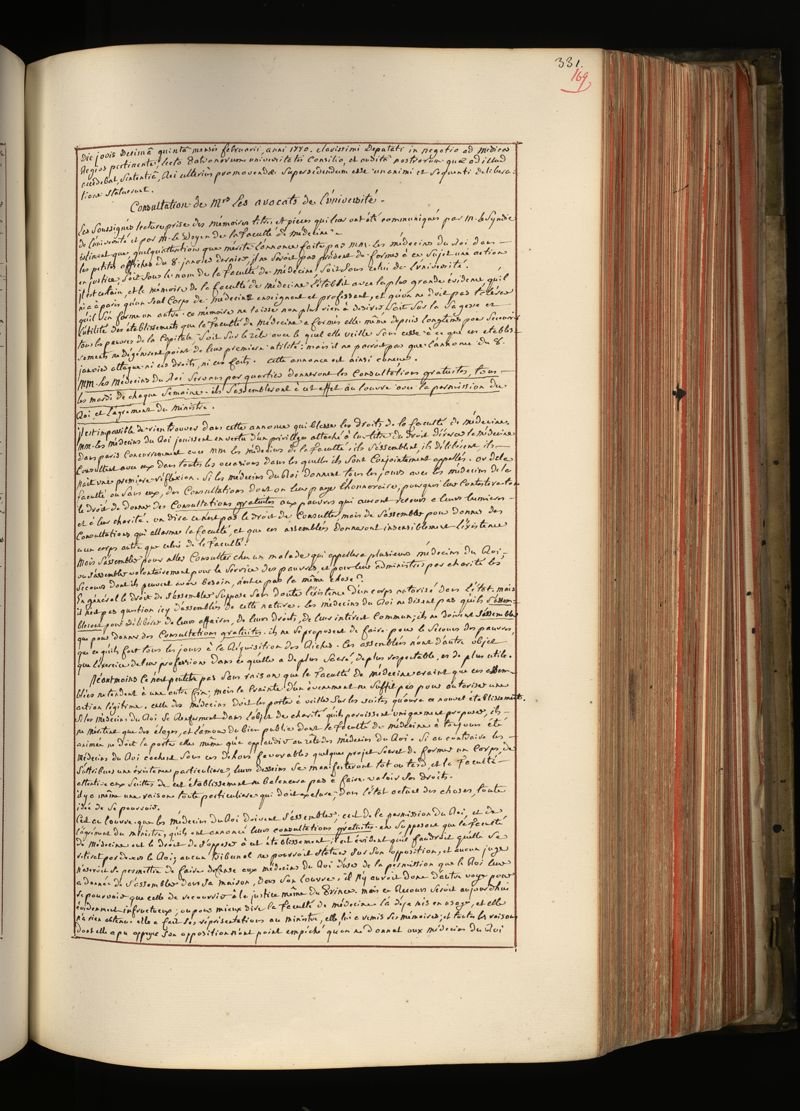 331.
169
Die jovis Decimâ quintâ mensis februarii, anni 1770. clarissimi Deputati in negotio ad medicos
Regios pertinente, lecto dationorum universitatis Consilio, et auditâ nostrorum quæ ad illud
accedebat, sententiâ, Rei ulterius promovendæ supersedendum esse unanimi et sequenti delibera-
tione statuerunt.
Consultation de Mrs Les avocats de L'université.
Les soussignés lecture prise des mémoires titres et pièces qui leur ont été communiqués par M. le Syndic
de l'université et par M. le Doyen de la faculté de médecine.
Estiment que, quelqu'attention que mérite l'annonce faite par MM. les médecins du Roi dans
les petites affiches du 8. janvier dernier, il ne seroit pas prudent de former à ce sujet une action
en justice, soit sous le nom de la faculté de médecine, soit sous celui de l'université.
Il est certain, et le mémoire de la faculté de médecine l'établit avec la plus grande évidence qu'il
n'y a à paris qu'un seul Corps de médecins enseignant et professant, et qu'on ne doit pas tolérer
qu'il s'en forme un autre. ce mémoire ne laisse non plus rien à désirer soit sur la sagesse et
l'utilité des établissements que la faculté de médecine a formés elle même depuis longtems pour secourir
tous les pauvres de la Capitale, soit sur le zèle avec lequel elle veille sans cesse à ce que ces établis-
sements ne dégénèrent point de leur première utilité: mais il ne paroît pas que l'annonce du 8.
janvier attaque ni ces droits, ni ces faits. Cette annonce est ainsi conçue.
MM. les Médecins du Roi servans par quartier donneront les Consultations gratuites, tous
les mardi de chaque semaine. ils s'assembleront à cet effet au louvre avec la permission du
Roi et l'agrément du ministre.
Il est impossible de rien trouver dans cette annonce qui blesse les droits de la faculté de médecine.
MM. les médecins du Roi jouissent en vertu d'un privilège attaché à leur titre du droit d'exercer la médecine
dans paris Concurremment avec MM. les médecins de la faculté: ils s'assemblent, ils délibèrent, ils
Consultent avec eux dans toutes les occasions dans lesquelles ils sont Conjointement appellés. or de la
naît une première réflexion. Si les médecins du Roi donnent tous les jours avec les médecins de la
faculté ou sans eux, des Consultations dont on leur paye l'honoraire, pourquoi leur contestera-t-on
le droit de donner des Consultations gratuites aux pauvres qui auront recours à leurs lumières
et à leur charité. on dira ce n'est pas le droit de Consulter, mais de s'assembler pour donner des
Consultations qui allarme la faculté, et que ces assemblées donneront insensiblement l'existence
à un corps autre que celui de la faculté?
Mais s'assembler pour aller Consulter chez un malade qui appellera plusieurs médecins du Roi,
ou s'assembler volontairement pour le service des pauvres, et pour leur administrer par charité les
secours dont ils peuvent avoir besoin, n'est-ce pas la même chose?
En général le droit de s'assembler suppose sans doute l'existence d'un corps autorisé dans l'état. mais
il n'est pas question icy d'assemblées de cette nature. les médecins du Roi ne disent pas qu'ils s'assem-
bleront pour délibérer de leurs affaires, de leurs droits, de leur intérêt Commun; ils ne doivent s'assembler
que pour donner des Consultations gratuites. ils ne se proposent de faire pour le secours des pauvres,
que ce qu'ils font tous les jours à la Réquisition des Riches. les assemblées n'ont d'autre objet
que l'exercice de leur profession dans ce qu'elle a de plus sacré, de plus respectable, et de plus utile.
Néantmoins ce n'est peut être pas sans raison que la faculté de médecine craint que ces assem-
blées ne tendent à une autre fin; mais la crainte d'un évènement ne suffit pas pour autoriser une
action légitime. celle des médecins doit les porter à veiller sur les suites qu'aura ce nouvel établissement.
Si les médecins du Roi se Renferment dans l'objet de charité qu'ils paroissent uniquement proposer, ils
ne méritent que des éloges, et l'amour du bien public dont la faculté de médecine a toujours été
animée ne doit la porter elle même que applaudir au zèle des médecins du Roi. Si au contraire les
médecins du Roi cachent sous ces dehors favorables quelque projet secret de former un Corps, de
s'attribuer une existence particulière, leurs desseins se manifesteront tôt ou tard, et la faculté
attentive aux suites de cet établissement ne balancera pas à faire valoir ses droits.
il y a même une raison toute particulière qui doit exclure, dans l'état actuel des choses, toute
idée de se pourvoir.
C'est au louvre que les médecins du Roi doivent s'assembler, c'est de la permission du Roi, et de
l'agrément du ministre, qu'ils ont annoncé leurs consultations gratuites. en supposant que la faculté
de médecine eut le droit de s'opposer à cet établissement, il est évident qu'il faudroit qu'elle se
retirat par devers le Roi; aucun Tribunal ne pourroit statuer sur son opposition, et aucun juge
n'oseroit se permettre de faire défense aux médecins du Roi d'user de la permission que le Roi leur
a donnée de s'assembler dans sa maison, dans son louvre. il n'y auroit donc d'autre voye pour
se pourvoir que celle de recourir à la justice même du Prince. mais ce Recours seroit aujourdhui
évidemment infructueux; ou pour mieux dire la faculté de médecine l'a déja mis en usage, et elle
n'a rien obtenu. elle a fait ses représentations au ministre, elle lui a remis ses mémoires; et toutes les raisons
dont elle a pu appuyer son opposition n'ont point empêché qu'on ne donnat aux médecins du Roi